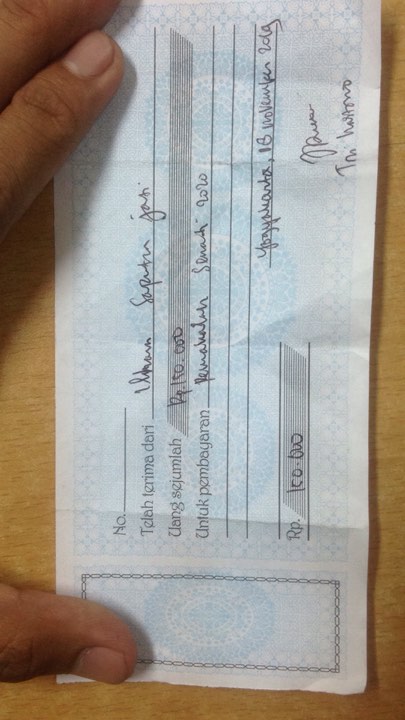 No.
Telah terima dari Saputra jati
Uang sejumlah Rp.150.000
Untuk pembayaran Pemakalah 2020
Yogyakarta, 18 november 2019
Rp. 150.000
Tri